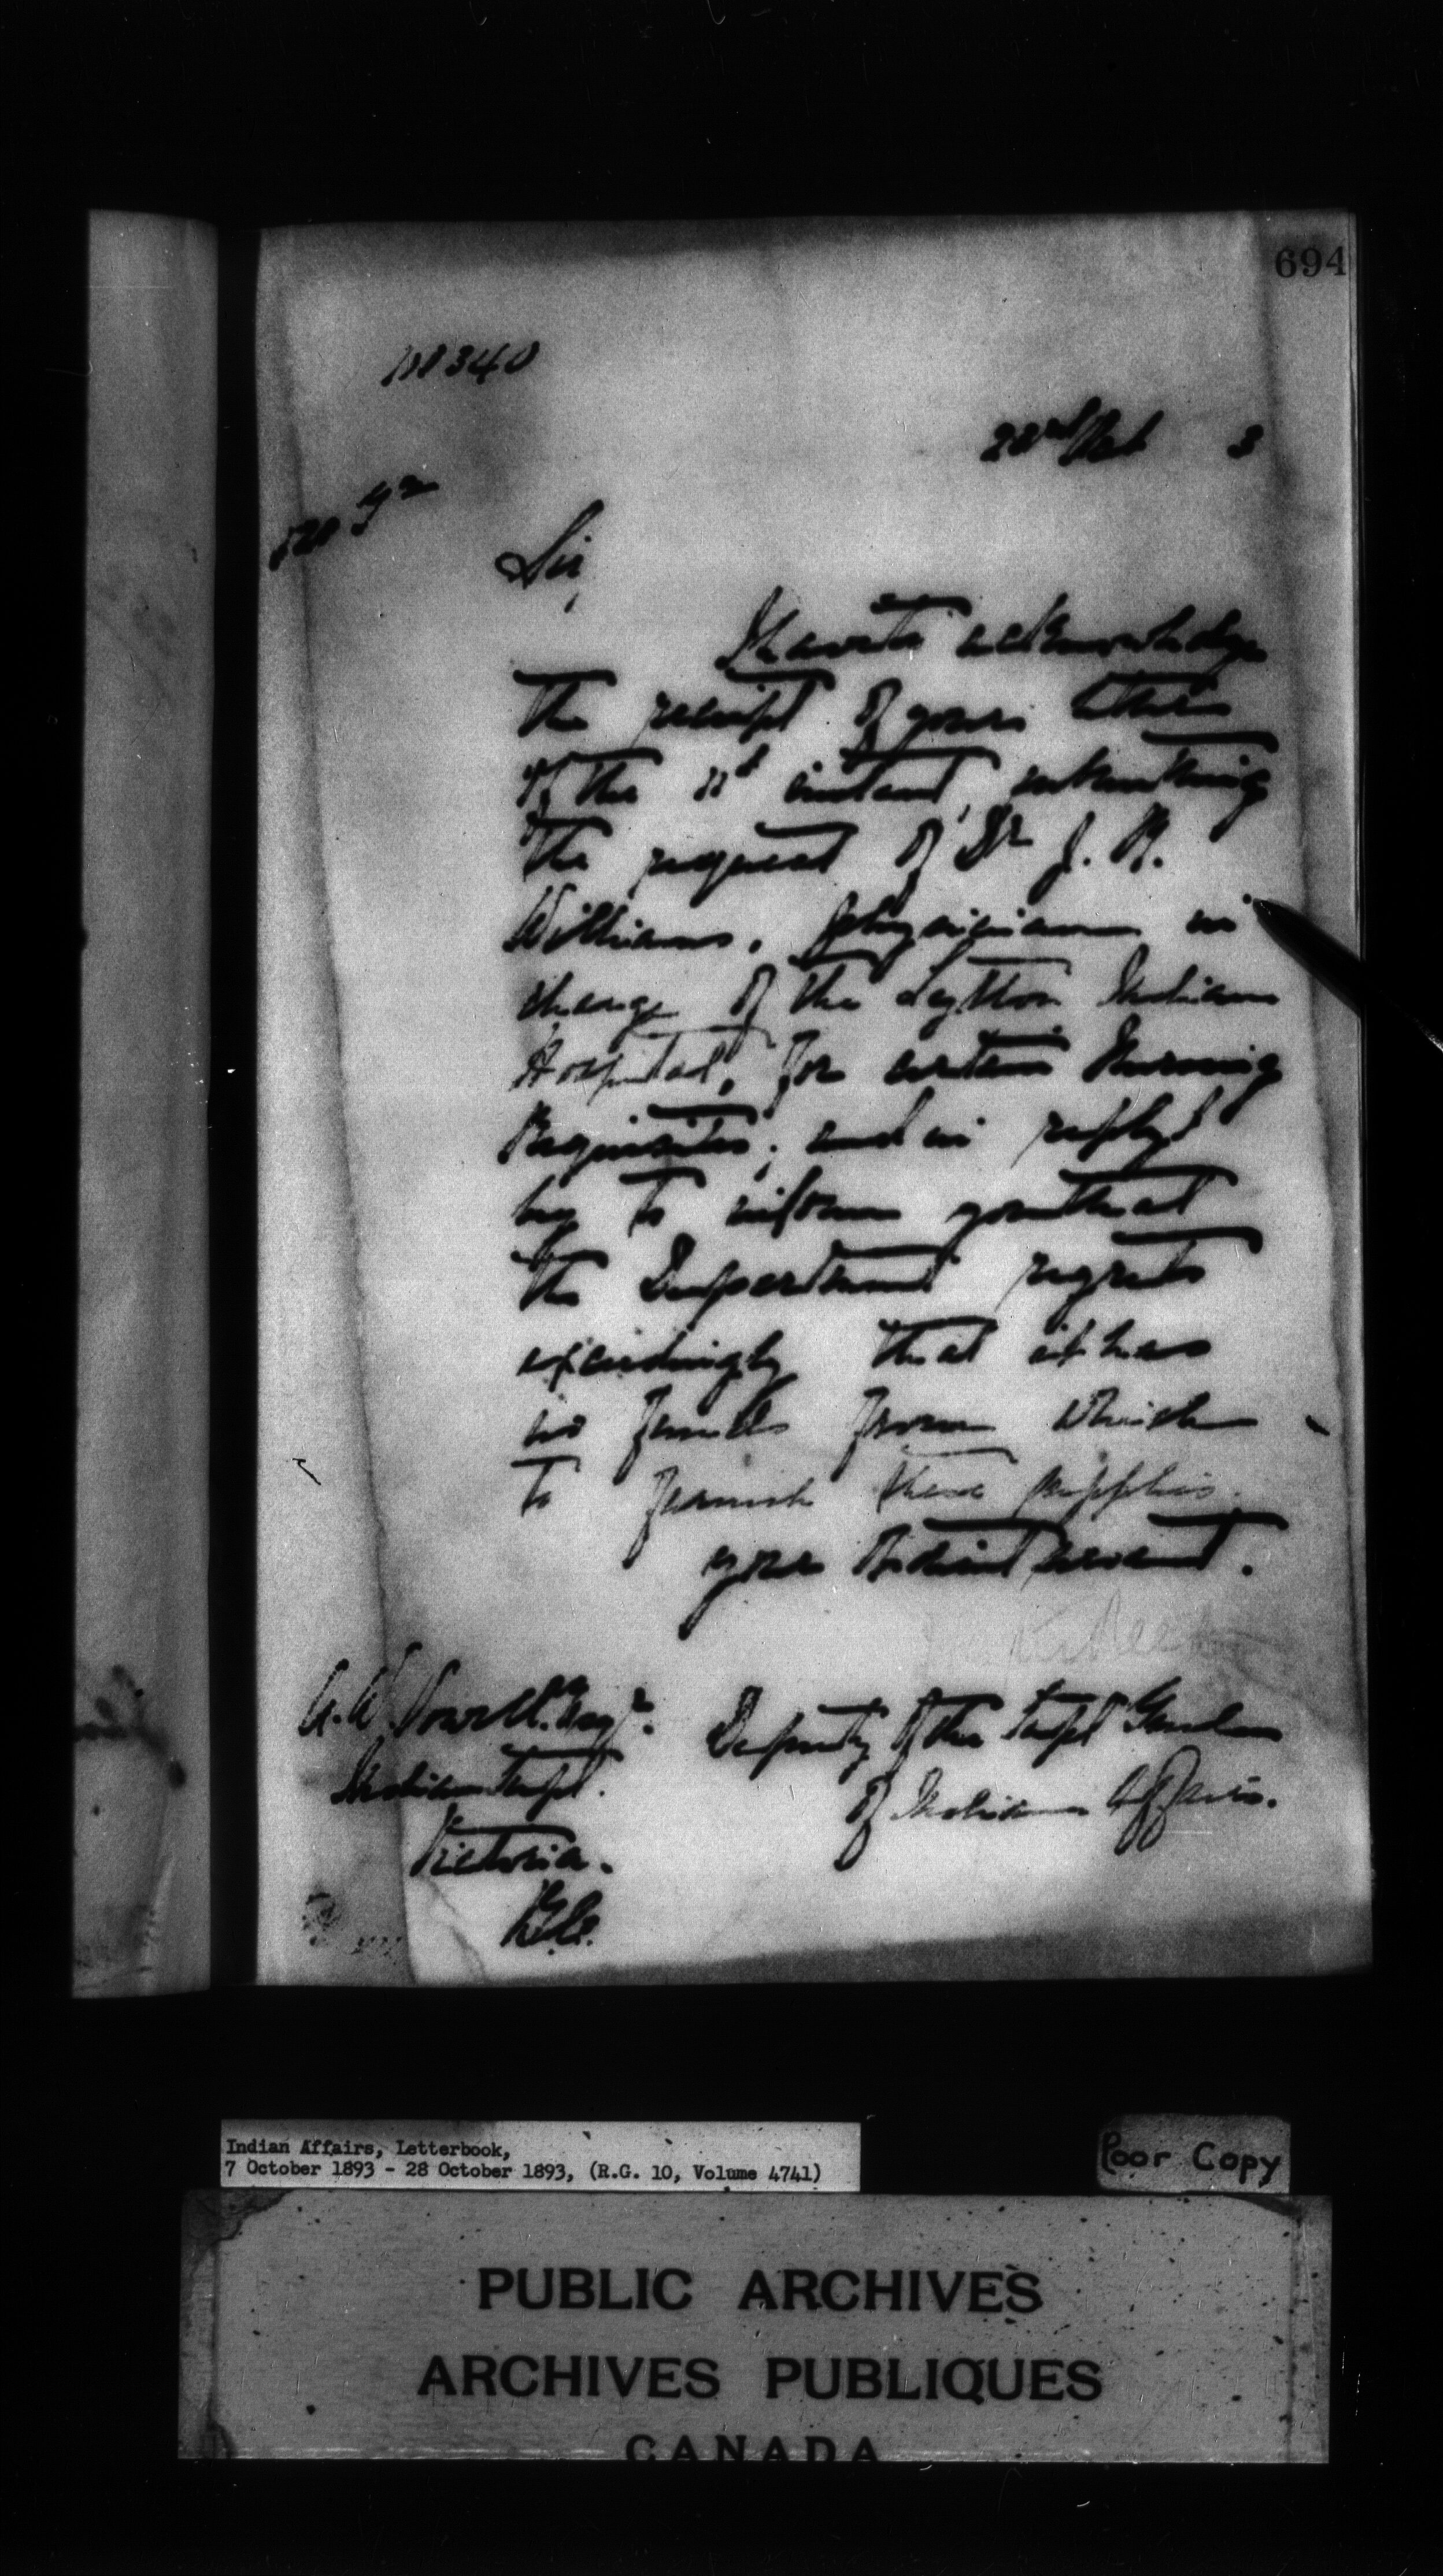 694
111340
Oct 3
Sir,
I have to acknowledge
the receipt of your letter
of the instant, submitting
the request of Dr J.
Williams, physician in
charge of the Lytton Indian
Hospital, for certain Nursing
Requisites; and in reply I
beg to inform you that
the Department regrets
exceedingly that it has
no funds from which
to furnish these supplies.
your obedient servant.
A.W. Vowell. Esqr.
Deputy of the Supt General
Indian Supt.
of Indian Affairs.
Victoria.
B.C.
Indian Affairs, Letterbook,
7 October 1893 - 28 October 1893, (R.G. 10, Volume 4741)
Poor Copy
PUBLIC ARCHIVES
ARCHIVES PUBLIQUES
CANADA